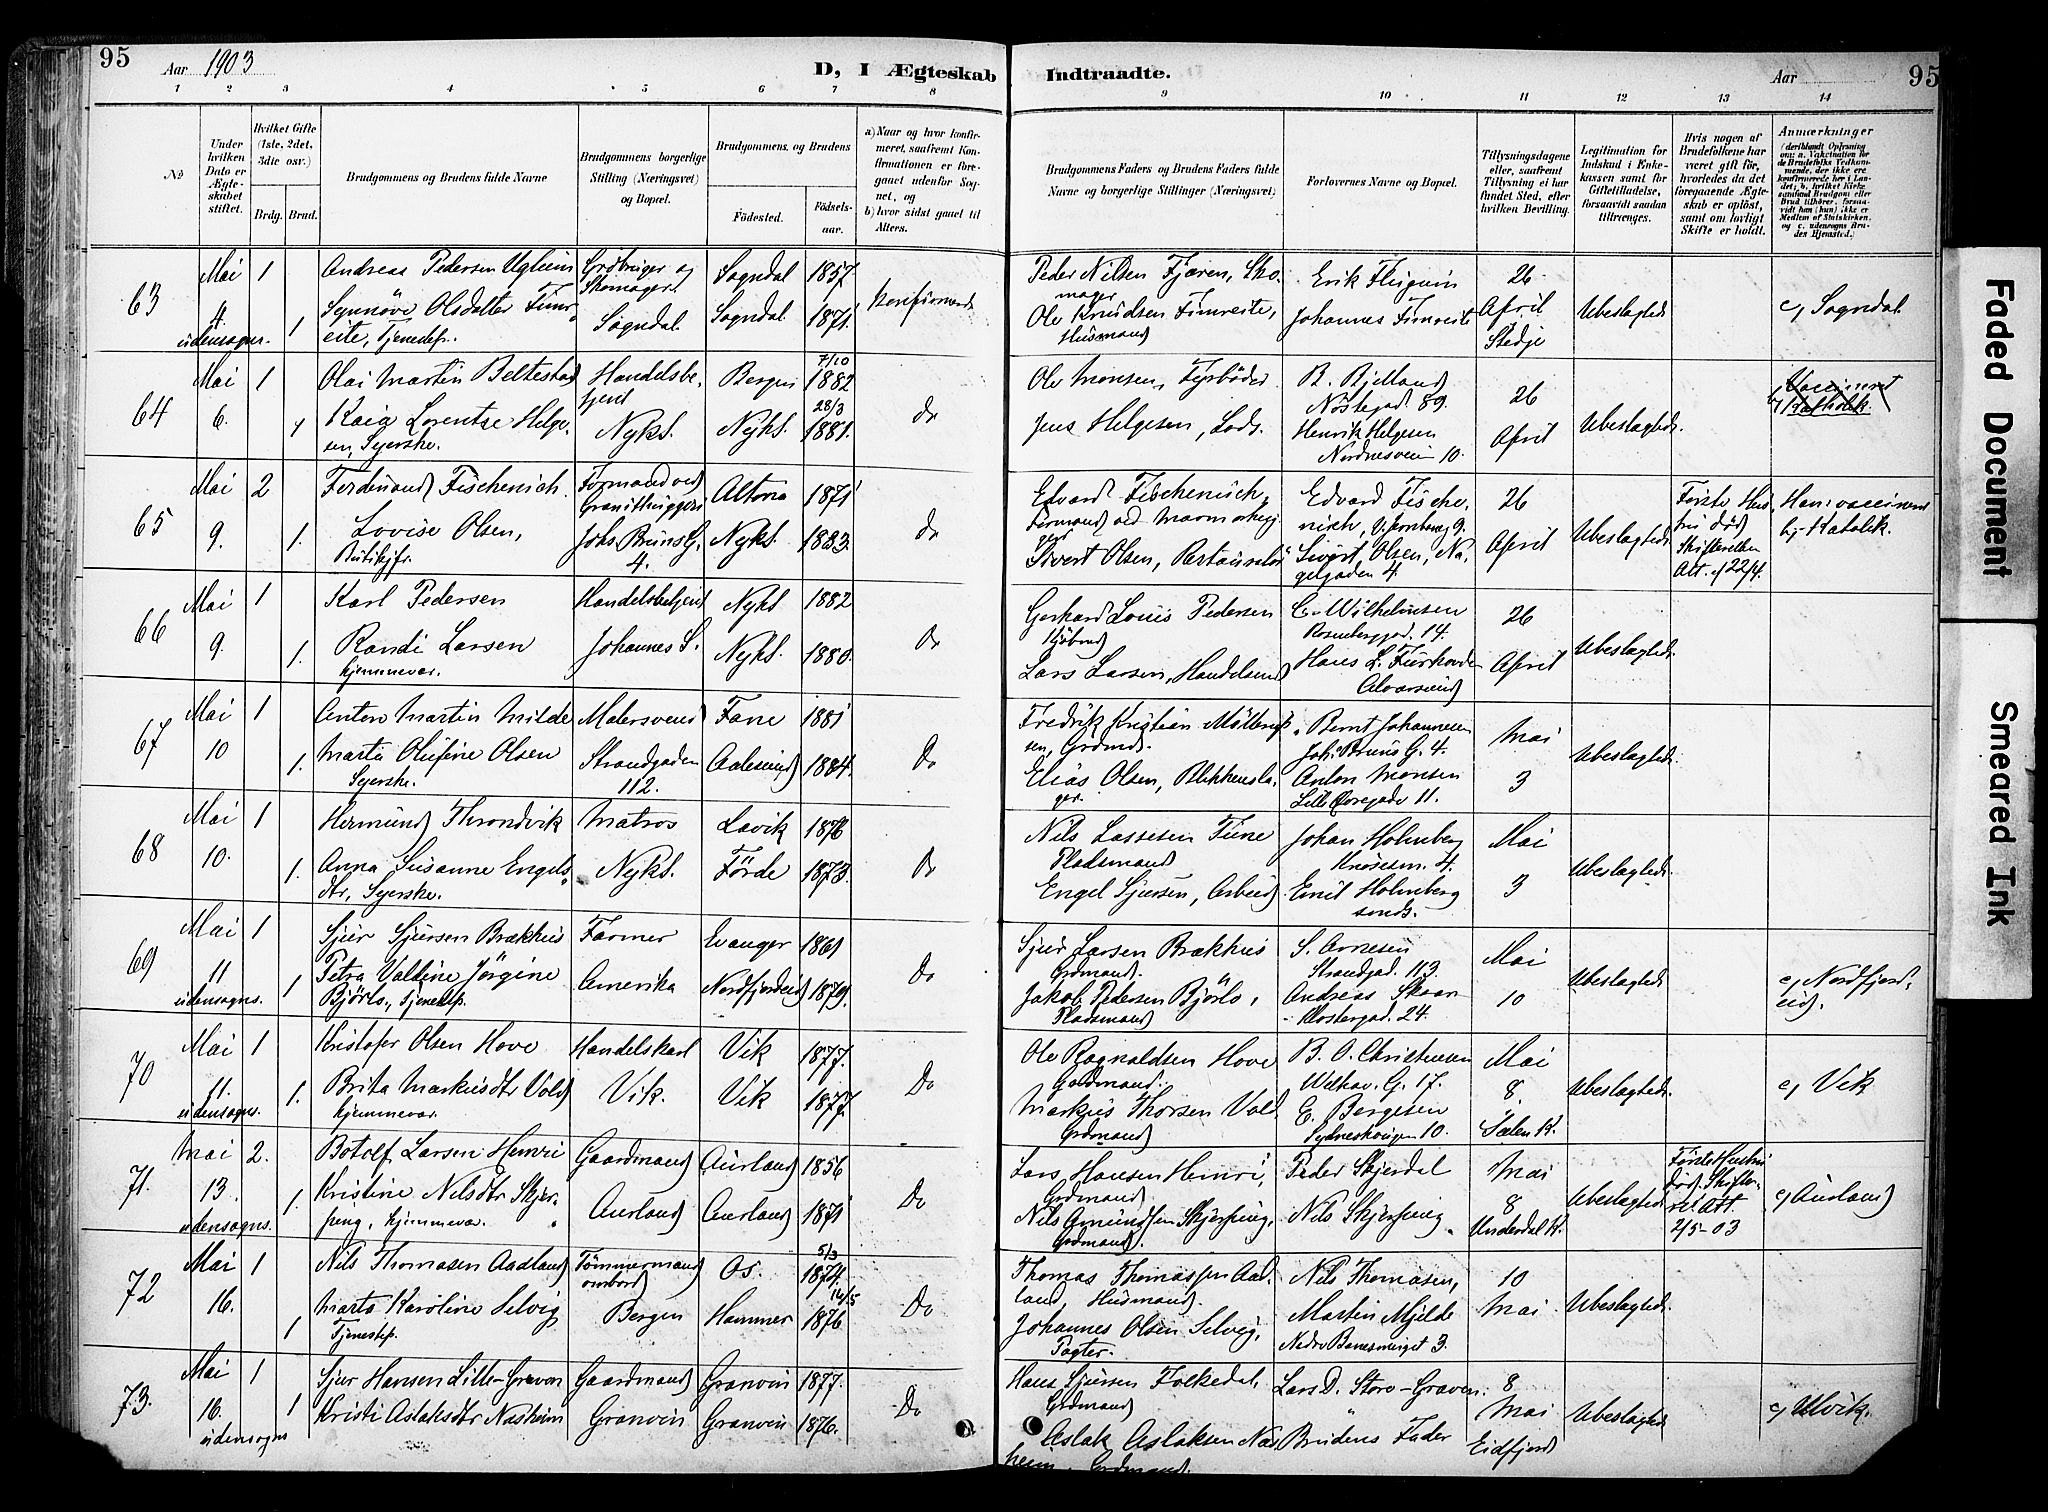 95
Aar 1903
D, I Ægteskab Indtraadte.
Aar
95
1 2 3 4 5 6 7 8 9 10 11 12 13 14
No
Under hvilken Dato er Ægteskabet stiftet.
Hvilket Gifte (1ste, 2det, 3die osv.)
Brdg. Brud.
Brudgommens og Brudens fulde Navne
Brudgommens borgerlige Stilling (Næringsvei) og Bopæl.
Brudgommens og Brudens
Födested.
Födsels-aar.
a) Naar og hvor konfirmeret, saafremt Konfirmationen er foregaaet udenfor Sognet, og
b) hvor sidst gaaet til Alters.
Brudgommens Faders og Brudens Faders fulde Navne og borgerlige Stillinger (Næringsvei)
Forlovernes Navne og Bopæl.
Tillysningsdagene eller, saafremt Tillysning ei har fundet Sted, efter hvilken Bevilling.
Legitimation for Indskud i Enkekassen samt for Giftetilladelse, forsaavidt saadan tiltrænges.
Hvis nogen af Brudefolkene har været gift för, hvorledes da det foregaaende Ægteskab er oplöst, samt om lovligt Skifte er holdt.
Anmærkninger
63 Mai 4. udensogns. 1 1
Andreas Pedersen Ugleim
Synnöve Olsdatter Fimreite, Tjenestep.
Skomager. Sogndal
Sogndal 1857.
Sogndal 1871.
konfirmerede
Peder Nilsen Fjæren, Skomager
Ole Knudsen Fimreite, Husmand
Johannes Fimreite
26 April Stedje
Ubeslægted
c, Sogndal
64 Mai 6. 1 1
Olai Martin Beltestad
Kaia Lorentse Helgesen, Syerske.
Handelsbetjent Nyks.
Bergen 7/10 1882
Nyks. 28/3 1881.
Do
Ole Monsen, Fyrböder
Jens Helgesen, Lods.
B. Bjelland Nöstegad. 89.
Henrik Helgesen Nordnesveien 10.
26 April
Ubeslægted.
Vaccineret
b, Katholik.
65 Mai 9. 2 1.
Ferdinand Fischenich.
Lovise Olsen, Butikjfr.
Formand ved Granithuggeri Johs Bruns G. 4.
Altona 1871
Nyks. 1883.
Do
Edvard Fischenich, Formand ved
Sivert Olsen, Restauratör
Edvard Fischenich,
Sivert Olsen, Nagelgaden 4.
26 April
Ubeslægted
Förste Hustru död Skifteretten Att. af 22/4.
Han vaccineret
b, Katolik.
66 Mai 9. 1 1.
Karl Pedersen
Randi Larsen hjemmevær.
Handelsbetjent Johannes S.
Nyks 1882
Nyks. 1880.
Do
Gerhard Louis Pedersen Kjöbmd
Lars Larsen, Handelsmd
C. Wilhelmsen Rosenberggad. 14.
Hans L. Alversund
26 April
Ubeslægted.
67 Mai 10 1 1.
Anton Martin Milde
Marta Olufine Olsen Syerske.
Malersvend Strandgaden 112.
Fane 1881
Aalesund 1884.
Do
Fredrik Kristian Möllerup-sen, Grdmd.
Elias Olsen, Blikkenslager.
Bernt Johannesen Johs Bruns G. 4.
Anton Monsen Lille Övregade 11.
Mai 3
Ubeslægted.
68 Mai 10. 1 1.
Hermund Throndvik
Anna Susanne Engelsdtr, Syerske.
Matros Nyks.
Lavik 1876
Förde 1873.
Do
Nils Lassesen Tune Pladsmand
Engel Sjursen, Arbeid.
Johan Holmberg Knösesm. 4.
Emil Holmberg smds.
Mai 3
Ubeslægted.
69 Mai 11 udensogns. 1 1
Sjur Sjursen Brækhus
Petra Valtine Jörgine Björlo, Tjenestep.
Farmer Amerika
Evanger 1861
Nordfjordeid 1879.
Do
Sjur Larsen Brækhus Grdmand.
Jakob Pedersen Björlo, Pladsmand
S. Arnesen Strandgad. 113.
Andreas Skaar Klostergad. 24.
Mai 10
Ubeslægted
c, Nordfjordeid.
70 Mai 11. udensogns. 1 1.
Kristofer Olsen Hove
Brita Markusdtr Vold hjemmevær.
Handelskarl Vik.
Vik 1877.
Vik 1877.
Do
Ole Ragnaldsen Hove Gaardmand.
Markus Thorsen Vold. Grdmand
B. O. Christensen Welhav. G. 17.
E. Børgesen Sydneskougen 10.
Mai 8.
Ubeslægted.
c, Vik
71. Mai 13. udensogns. 2. 1.
Botolf Larsen Hemri
Kristine Nilsdtr Skjerping, hjemmevær.
Gaardmand Aurland
Aurland 1856
Aurland 1871
Do
Lars Hansen Hemri, Grdmand.
Nils Amundsen Skjerping, Grdmand.
Peder Skjerdal
Nils Skjerping
Mai 8 Underdal K.
Ubeslægted
Förste Hustru död. Skifteret. Att. 2/5-03
c, Aurland
72 Mai 16. 1 1
Nils Thomasen Aadland
Marta Karoline Selvig Tjenestep.
Tömmermand ombord Bergen
Os. 5/3 1874.
Hammer 16/5 1876
Do
Thomas Thomassen Aadland, Husmand.
Johannes Olsen Selvig, Pagter.
Nils Thomasen,
Martin Mjelde Nedre Banesmuget 3.
10 Mai
Ubeslægted.
73. Mai 16. udensogns 1 1
Sjur Hansen Lille-Graven
Kristi Aslaksdtr Nasheim
Gaardmand Granvin
Granvin 1877.
Granvin 1876.
Do
Hans Sjursen Folkedal, Grdmand
Aslak Aslaksen Nasheim. Grdmand.
Lars D. Store-Graven.
Brudens Fader
8 Mai Eidfjord
Ubeslægted
c, Ulvik.
Faded Document
Smeared Ink